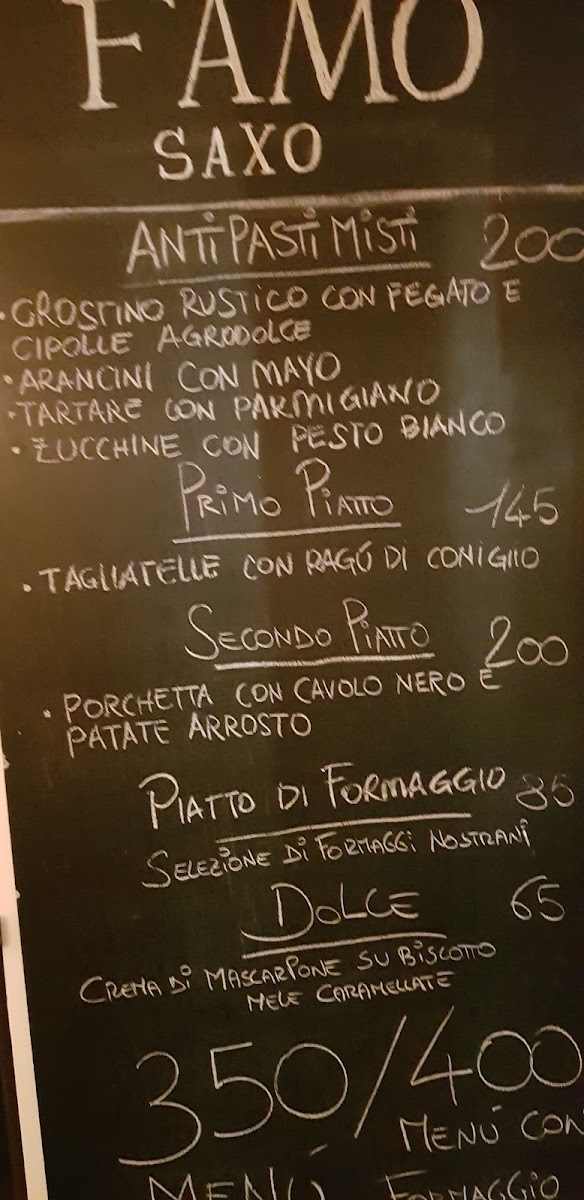 FAMO
SAXO
ANTIPASTI MISTI 200
• CROSTINO RUSTICO CON FEGATO E
CIPOLLE AGRODOLCE
• ARANCINI CON MAYO
• TARTARE CON PARMIGIANO
• ZUCCHINE CON PESTO BIANCO
PRIMO PIATTO 145
• TAGLIATELLE CON RAGÚ DI CONIGLIO
SECONDO PIATTO 200
• PORCHETTA CON CAVOLO NERO E
PATATE ARROSTO
PIATTO DI FORMAGGIO 85
SELEZIONE DI FORMAGGI NOSTRANI
DOLCE 65
CREMA DI MASCARPONE SU BISCOTTO
MELE CARAMELLATE
350/400
MENÚ CON
MENÚ FORMAGGIO